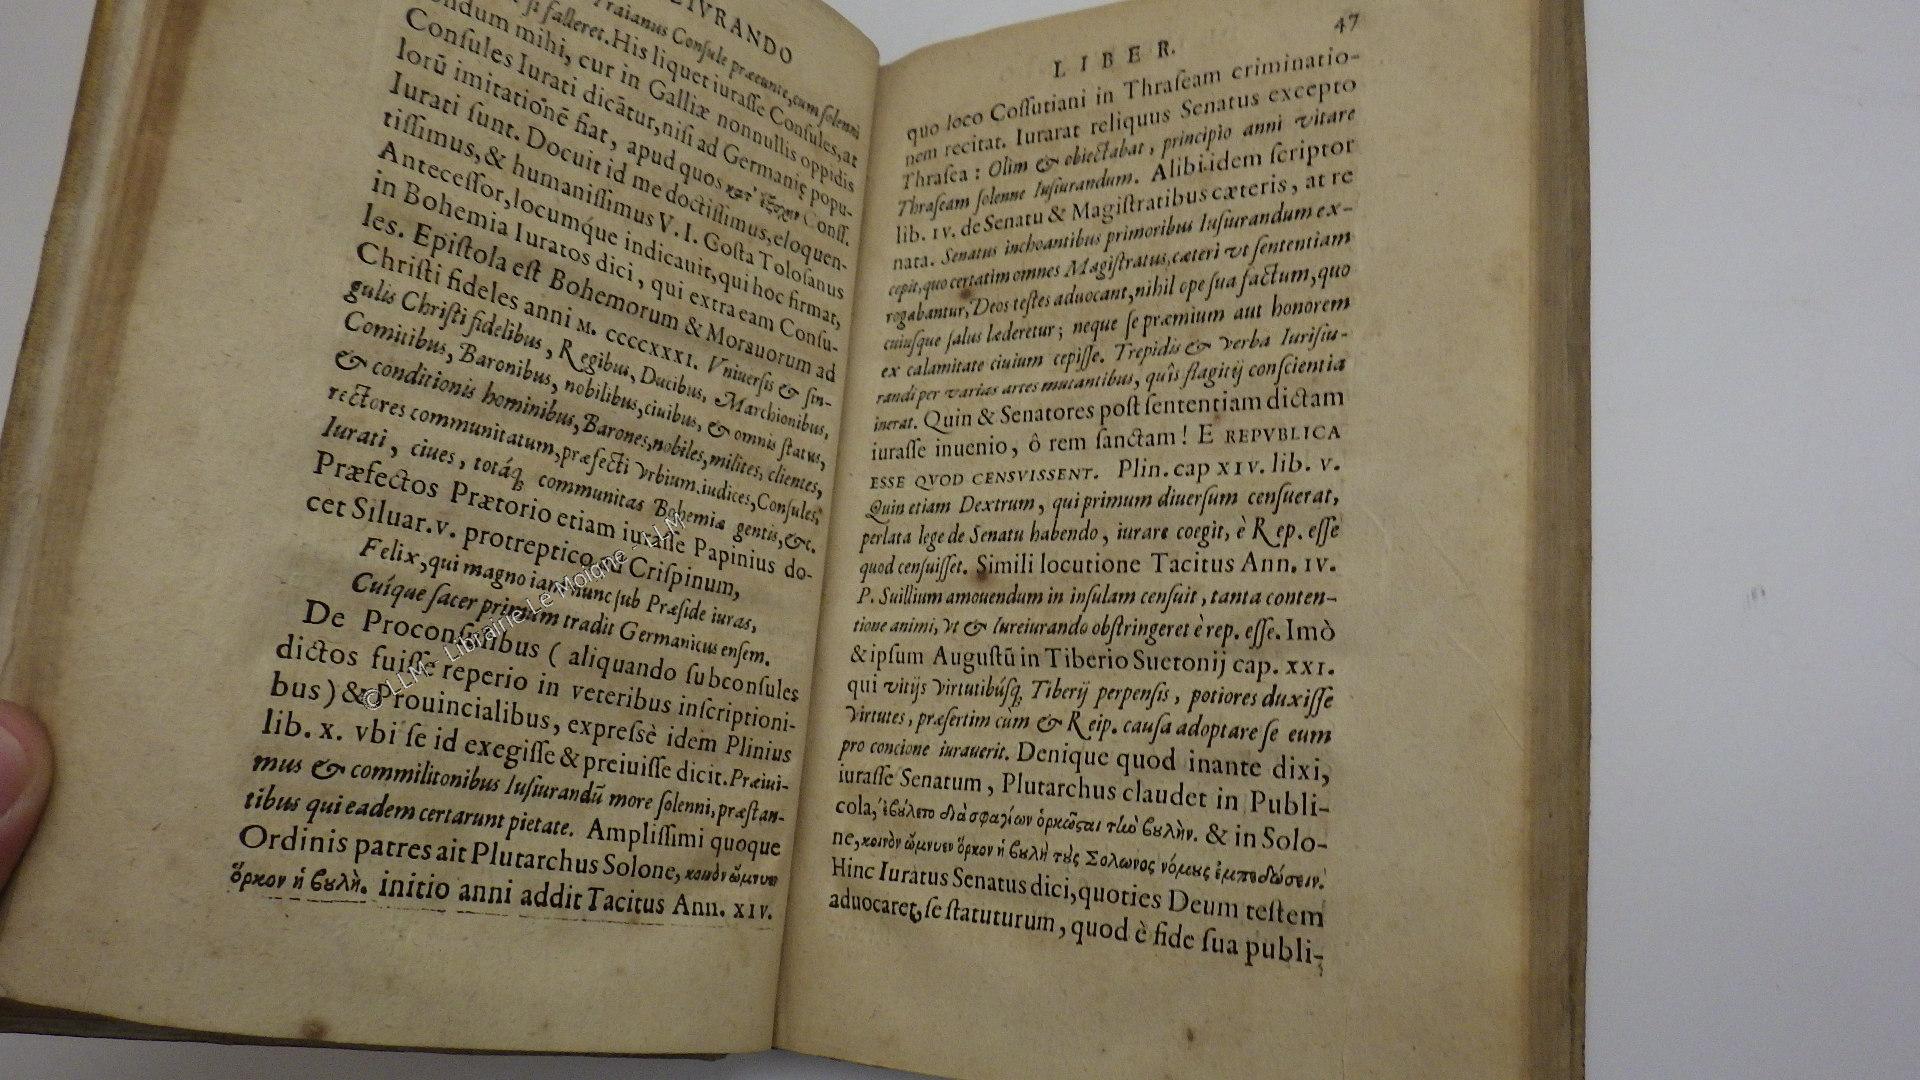 IVRANDO
Traianus Consule præeunte, cum solenni
si falleret. His liquet iurasse Consules, at
mihi, cur in Galliæ nonnullis oppidis
Consules Iurati dicātur, nisi ad Germanię popu-
lorū imitationē fiat, apud quos κατ' ἐξοχὴν Conss.
Iurati sunt. Docuit id me doctissimus, eloquen-
tissimus, & humanissimus V. I. Gosta Tolosanus
Antecessor, locumq́ue indicauit, qui hoc firmat,
in Bohemia Iuratos dici, qui extra eam Consu-
les. Epistola est Bohemorum & Morauorum ad
Christi fideles anni M. CCCCXXXI. Vniuersis & sin-
gulis Christi fidelibus, Regibus, Ducibus, Marchionibus,
Comitibus, Baronibus, nobilibus, ciuibus, & omnis status,
& conditionis hominibus, Barones, nobiles, milites, clientes,
rectores communitatum, præfecti vrbium, iudices, Consules,
Iurati, ciues, totáq; communitas Bohemiæ gentis, &c.
Præfectos Prætorio etiam iurasse Papinius do-
cet Siluar. v. protreptico ad Crispinum,
Felix, qui magno iam nunc sub Præside iuras,
Cuíque sacer primum tradit Germanicus ensem.
De Proconsulibus ( aliquando subconsules
dictos fuisse reperio in veteribus inscriptioni-
bus) & Prouincialibus, expressè idem Plinius
lib. x. vbi se id exegisse & preiuisse dicit. Præiui-
mus & commilitonibus Iusiurandū more solenni, præstan-
tibus qui eadem certarunt pietate. Amplissimi quoque
Ordinis patres ait Plutarchus Solone, κοινὸν ὤμνυεν
ὅρκον ἡ βουλὴ. initio anni addit Tacitus Ann. XIV.
© LLM - Librairie Le Moigne - LLM
LIBER. 47
quo loco Cossutiani in Thraseam criminatio-
nem recitat. Iurarat reliquus Senatus excepto
Thrasea : Olim & obiectabat, principio anni vitare
Thraseam solenne Iusiurandum. Alibi idem scriptor
lib. IV. de Senatu & Magistratibus cæteris, at re
nata. Senatus inchoantibus primoribus Iusiurandum ex-
cepit, quo certatim omnes Magistratus, cæteri vt sententiam
rogabantur, Deos testes aduocant, nihil ope sua factum, quo
cuiusque salus læderetur; neque se præmium aut honorem
ex calamitate ciuium cepisse. Trepidis & verba Iurisiu-
randi per varias artes mutantibus, quîs flagitij conscientia
inerat. Quin & Senatores post sententiam dictam
iurasse inuenio, ô rem sanctam! E REPVBLICA
ESSE QVOD CENSVISSENT. Plin. cap XIV. lib. v.
Quin etiam Dextrum, qui primum diuersum censuerat,
perlata lege de Senatu habendo, iurare coegit, è Rep. esse
quod censuisset. Simili locutione Tacitus Ann. IV.
P. Suillium amouendum in insulam censuit, tanta conten-
tione animi, vt & Iureiurando obstringeret è rep. esse. Imò
& ipsum Augustū in Tiberio Suetonij cap. XXI.
qui vitijs virtutibúsq; Tiberij perpensis, potiores duxisse
virtutes, præsertim cùm & Reip. causa adoptare se eum
pro concione iurauerit. Denique quod inante dixi,
iurasse Senatum, Plutarchus claudet in Publi-
cola, ἐβούλετο διὰ σφαγίων ὁρκῶσαι τὴν βουλὴν. & in Solo-
ne, κοινὸν ὤμνυεν ὅρκον ἡ βουλὴ τοὺς Σόλωνος νόμους ἐμπεδώσειν.
Hinc Iuratus Senatus dici, quoties Deum testem
aduocaret, se statuturum, quod è fide sua publi-